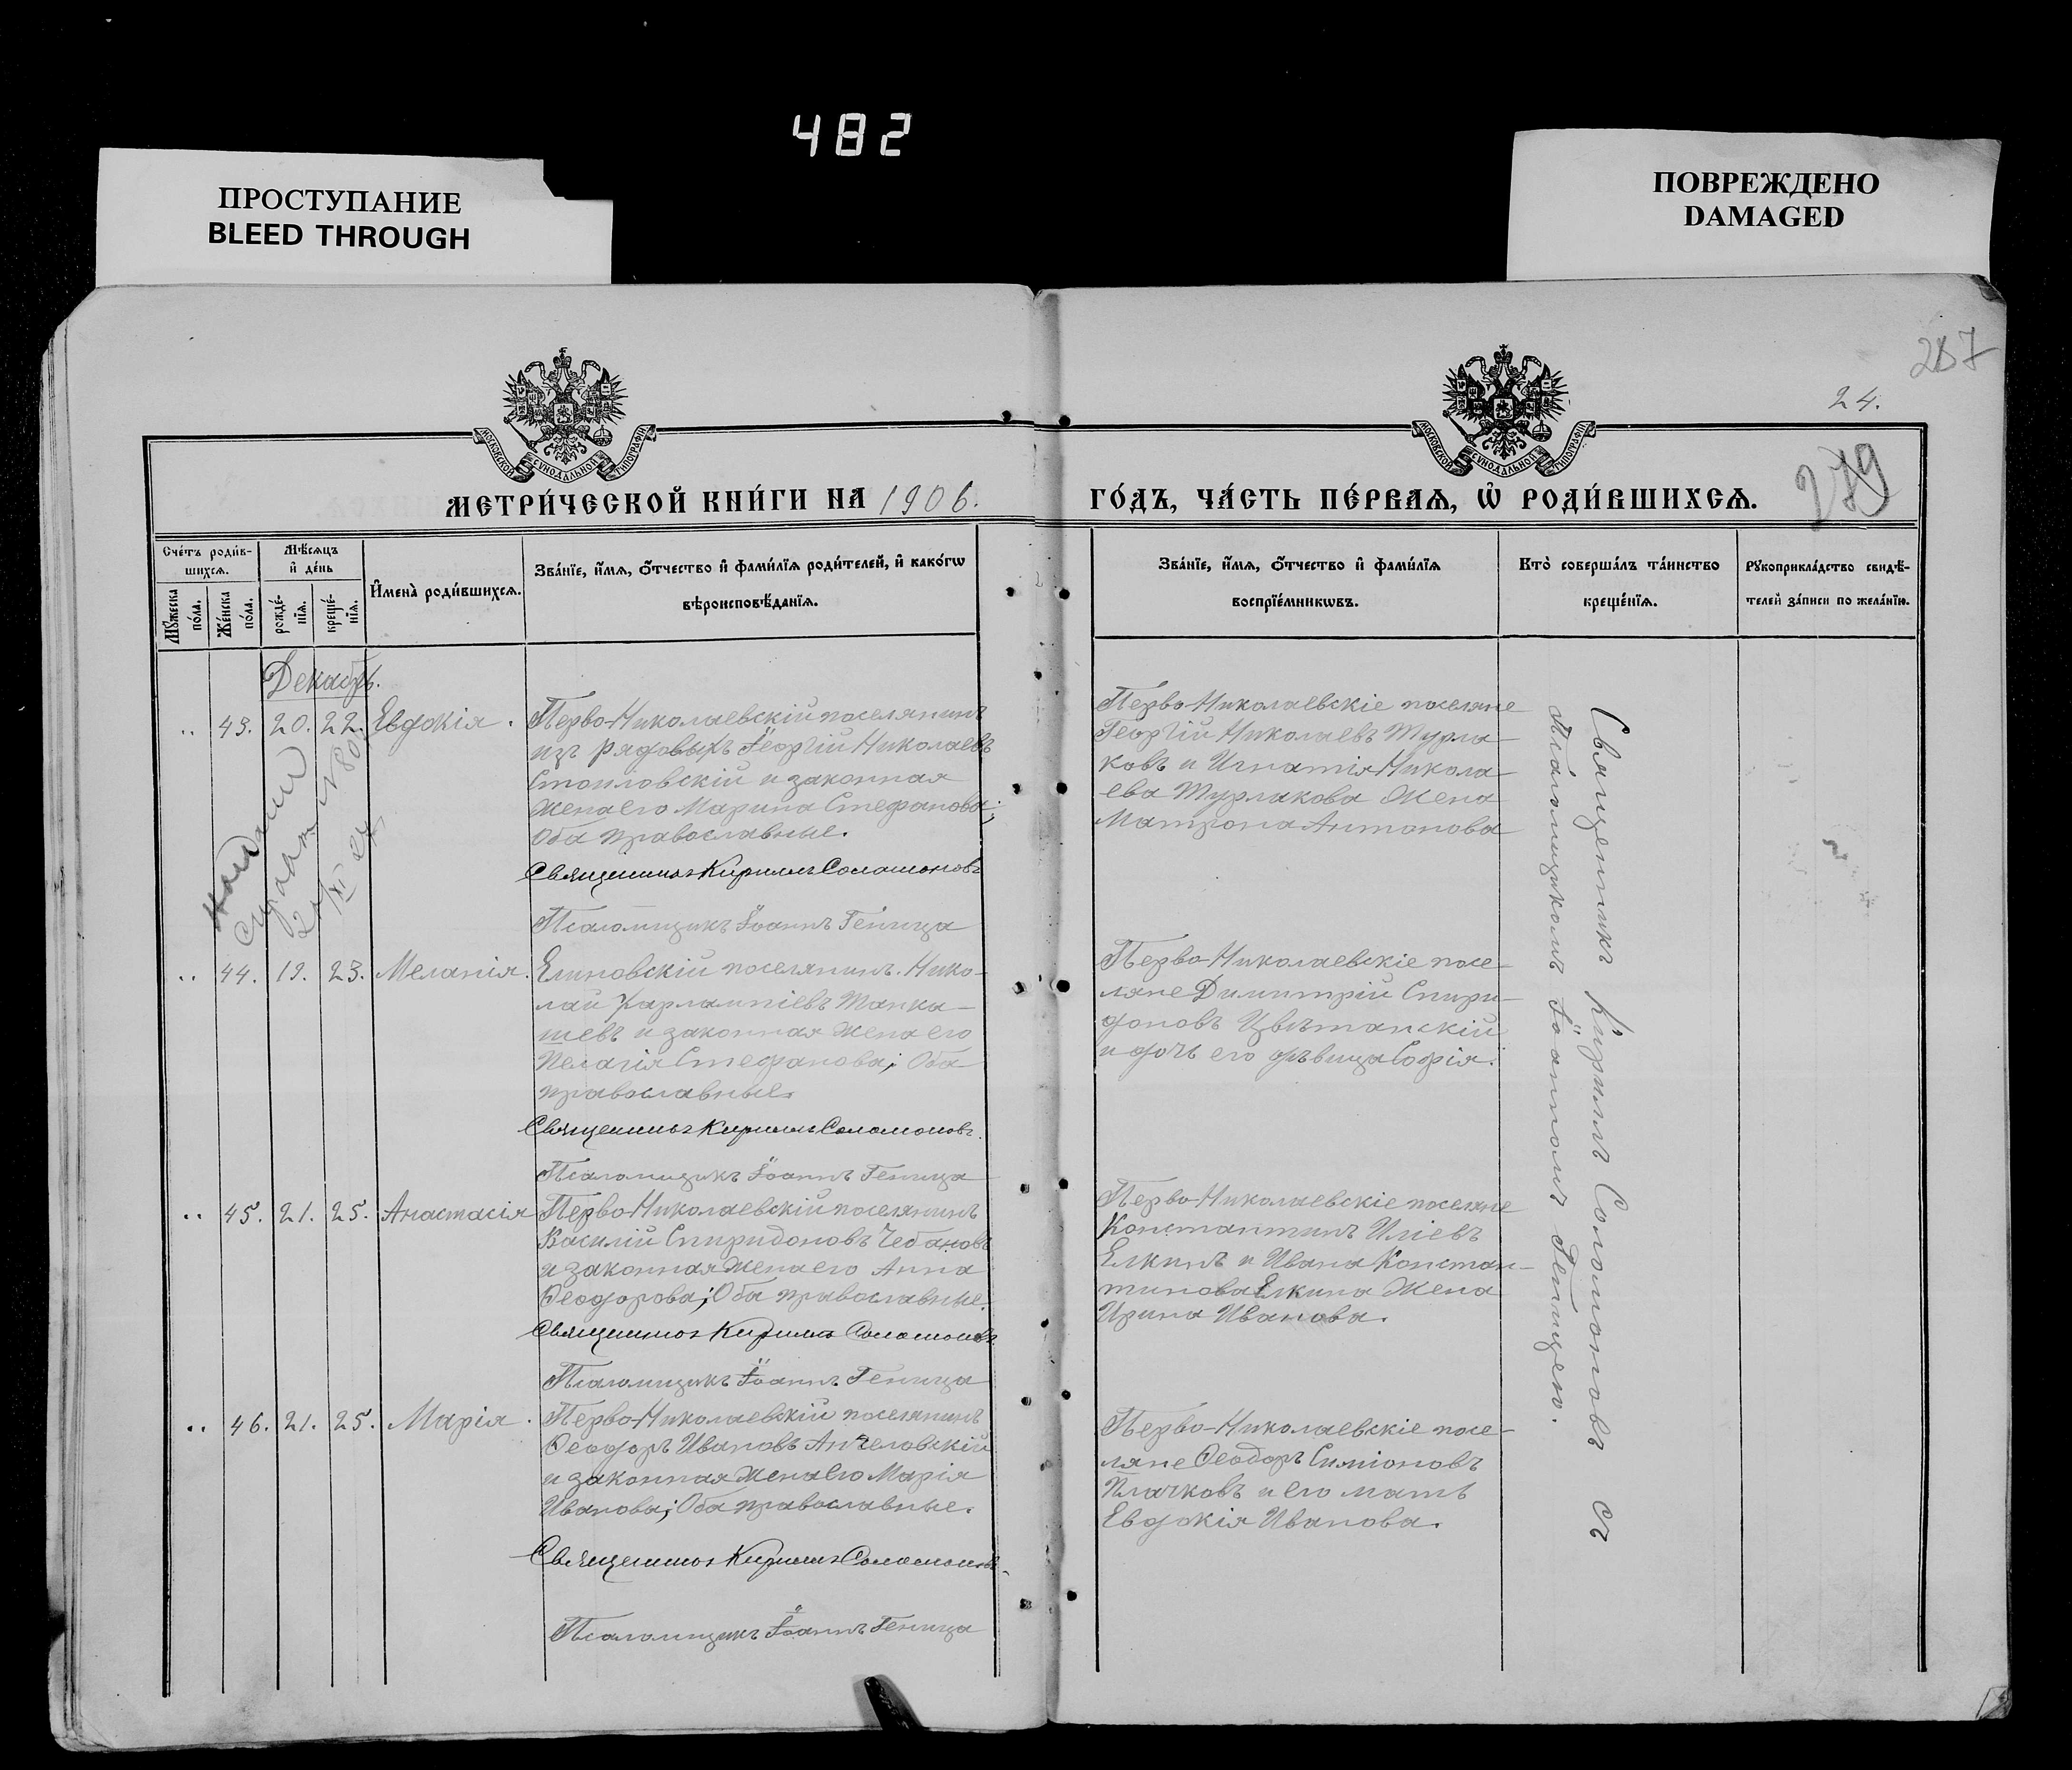 482
ПРОСТУПАНИЕ
BLEED THROUGH
ПОВРЕЖДЕНО
DAMAGED
24.
279
МОСКОВСКОЙ СѴНОДАЛЬНОЙ ТИПОГРАФІИ
МОСКОВСКОЙ СѴНОДАЛЬНОЙ ТИПОГРАФІИ
МЕТРИ́ЧЕСКОЙ КНИ́ГИ НА 1906.
ГО́ДЪ, ЧА́СТЬ ПЕ́РВАѦ, Ѡ҆ РОДИ́ВШИХСѦ.
Сче́тъ роди́в-
шихсѧ.
Мꙋ́жеска по́ла.
Же́нска по́ла.
Мѣ́сѧцъ
и҆ де́нь
рожде́-
нїѧ.
креще́-
нїѧ.
И҆мена̀ роди́вшихсѧ.
Зва́нїе, и҆́мѧ, ѻ҆́тчество и҆ фами́лїѧ роди́телей, и҆ како́гѡ
вѣроисповѣ́данїѧ.
Зва́нїе, и҆́мѧ, ѻ҆́тчество и҆ фами́лїѧ
воспрїе́мникѡвъ.
Кто̀ соверша́лъ та́инство
креще́нїѧ.
Рꙋкоприкла́дство свидѣ́-
телей за́писи по жела́нїю.
Декабрь.
„ 43. 20. 22. Евдокія.
Перво-Николаевскій поселянинъ
изъ рядовыхъ Георгій Николаевъ
Стоиловскій и законная
жена его Марина Стефанова;
Оба православные.
Священникъ Кириллъ Соломоновъ
Псаломщикъ Іоаннъ Геница
Перво-Николаевскіе поселяне
Георгій Николаевъ Турла-
ковъ и Игнатія Никола-
ева Турлакова жена
Матрона Антонова
„ 44. 19. 23. Меланія.
Елиновскій поселянинъ Нико-
лай Харлампіевъ Танка-
шевъ и законная жена его
Пелагія Стефанова; Оба
православные
Священникъ Кириллъ Соломоновъ.
Псаломщикъ Іоаннъ Геница
Перво-Николаевскіе посе-
ляне Димитрій Спири-
доновъ Цвѣтанскій
и дочь его дѣвица Софія.
„ 45. 21. 25. Анастасія
Перво-Николаевскій поселянинъ
Василій Спиридоновъ Чебановъ
и законная жена его Анна
Ѳеодорова; Оба православные.
Священникъ Кириллъ Соломоновъ
Псаломщикъ Іоаннъ Геница
Перво-Николаевскіе поселяне
Константинъ Иліевъ
Елкинъ и Ивана Констан-
тинова Елкина жена
Ирина Иванова.
„ 46. 21. 25. Марія.
Перво-Николаевскій поселянинъ
Ѳеодоръ Ивановъ Ангеловскій
и законная жена его Марія
Иванова; Оба православные.
Священникъ Кириллъ Соломоновъ
Псаломщикъ Іоаннъ Геница
Перво-Николаевскіе посе-
ляне Ѳеодоръ Симіоновъ
Плачковъ и его мать
Евдокія Иванова.
Священникъ Кириллъ Соломоновъ съ
Псаломщикомъ Іоанномъ Геницею.